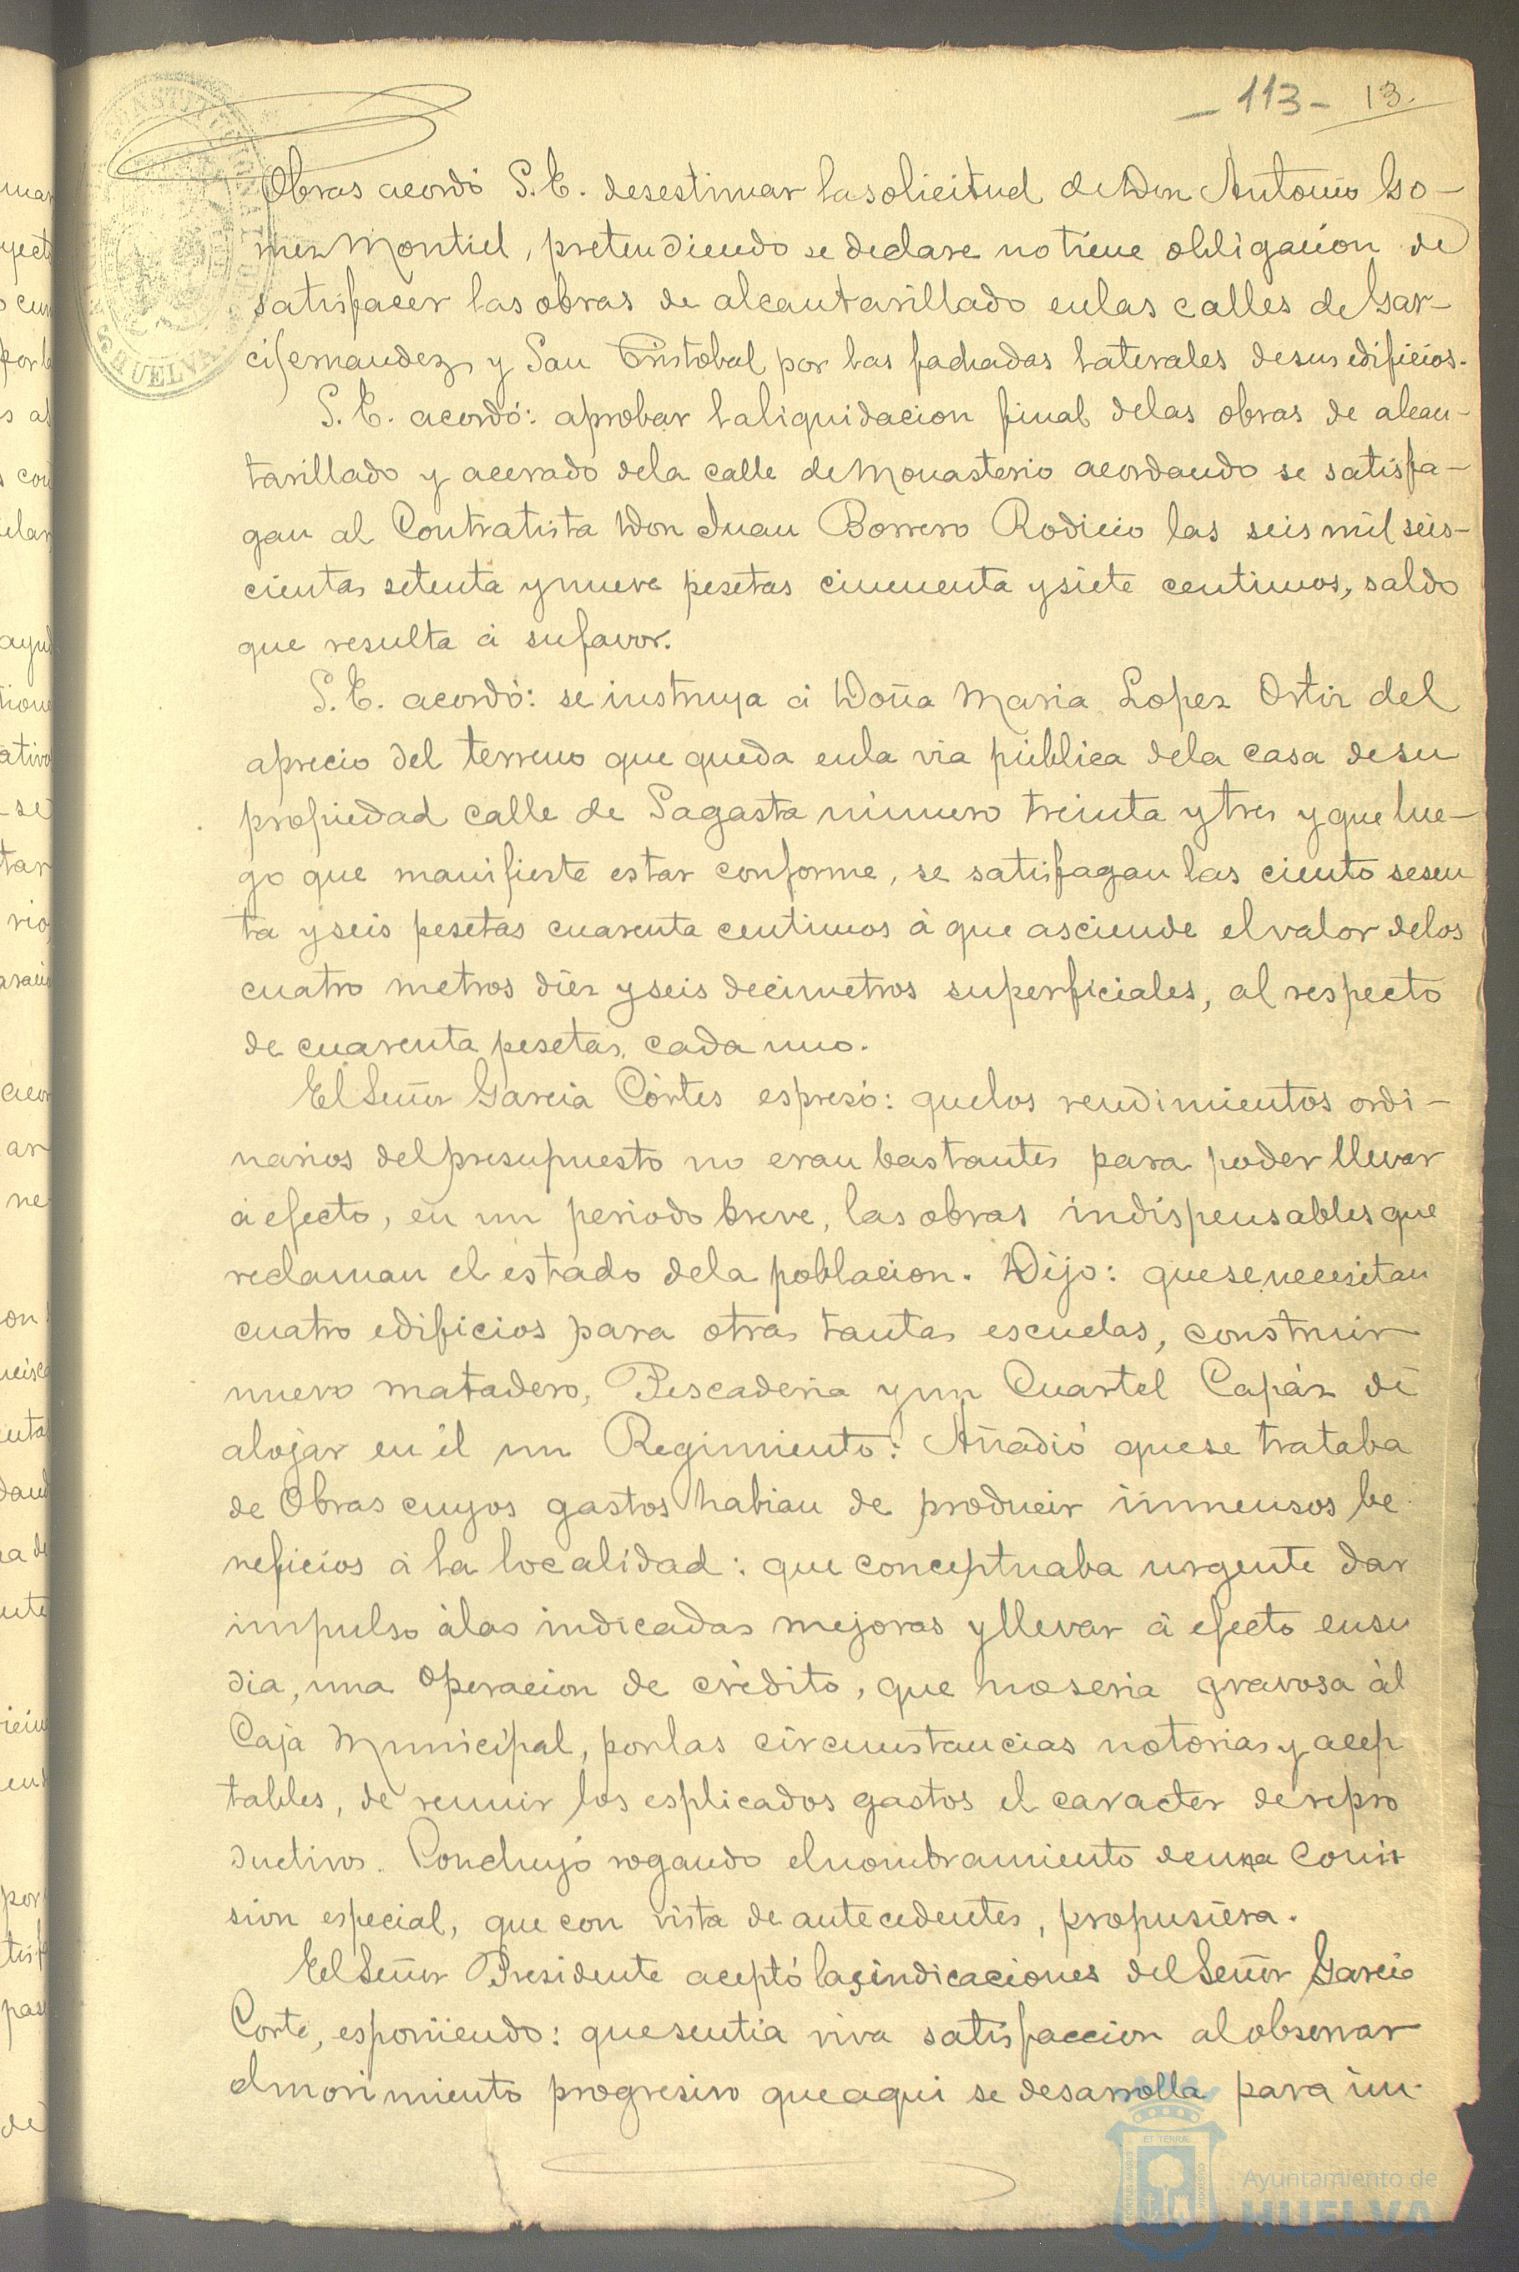 - 113 - 13.
Obras acordó S.E. desestimar la solicitud de Don Antonio Go-
mez Montiel, pretendiendo se declare no tiene obligacion de
satisfacer las obras de alcantarillado en las calles de Gar-
cifernandez y San Cristobal por las fachadas laterales de sus edificios.
S.E. acordó: aprobar la liquidacion final de las obras de alcan-
tarillado y acerado de la calle de Monasterio acordando se satisfa-
gan al Contratista Don Juan Borrero Rodicio las seis mil seis-
cientas setenta y nueve pesetas cincuenta y siete centimos, saldo
que resulta á su favor.
S.E. acordó: se instruya á Doña Maria Lopez Ortiz del
aprecio del terreno que queda en la via pública de la casa de su
propiedad calle de Sagasta número treinta y tres y que lue-
go que manifieste estar conforme, se satisfagan las ciento sesen
ta y seis pesetas cuarenta centimos á que asciende el valor de los
cuatro metros diez y seis decimetros superficiales, al respecto
de cuarenta pesetas cada uno.
El Señor Garcia Córtes espresó: que los rendimientos ordi-
narios del presupuesto no eran bastantes para poder llevar
á efecto, en un periodo breve, las obras indispensables que
reclaman el estado de la poblacion. Dijo: que se necesitan
cuatro edificios para otras tantas escuelas, construir
nuevo matadero, Pescaderia y un Cuartel Capáz de
alojar en él un Regimiento: Añadió que se trataba
de Obras cuyos gastos habian de producir inmensos be
neficios á la localidad: que conceptuaba urgente dar
impulso á las indicadas mejoras y llevar á efecto en su
dia, una Operacion de crédito, que no seria gravosa ál
Caja Municipal, por las circunstancias notorias y acep
tables, de reunir los esplicados gastos el caracter de repro
ductivos. Concluyó rogando el nombramiento de una Comi
sion especial, que con vista de antecedentes, propusiera.
El Señor Presidente aceptó las indicaciones del Señor Garcia
Corte, esponiendo: que sentia viva satisfaccion al observar
el movimiento progresivo que aqui se desarrolla para im-
Ayuntamiento de
HUELVA